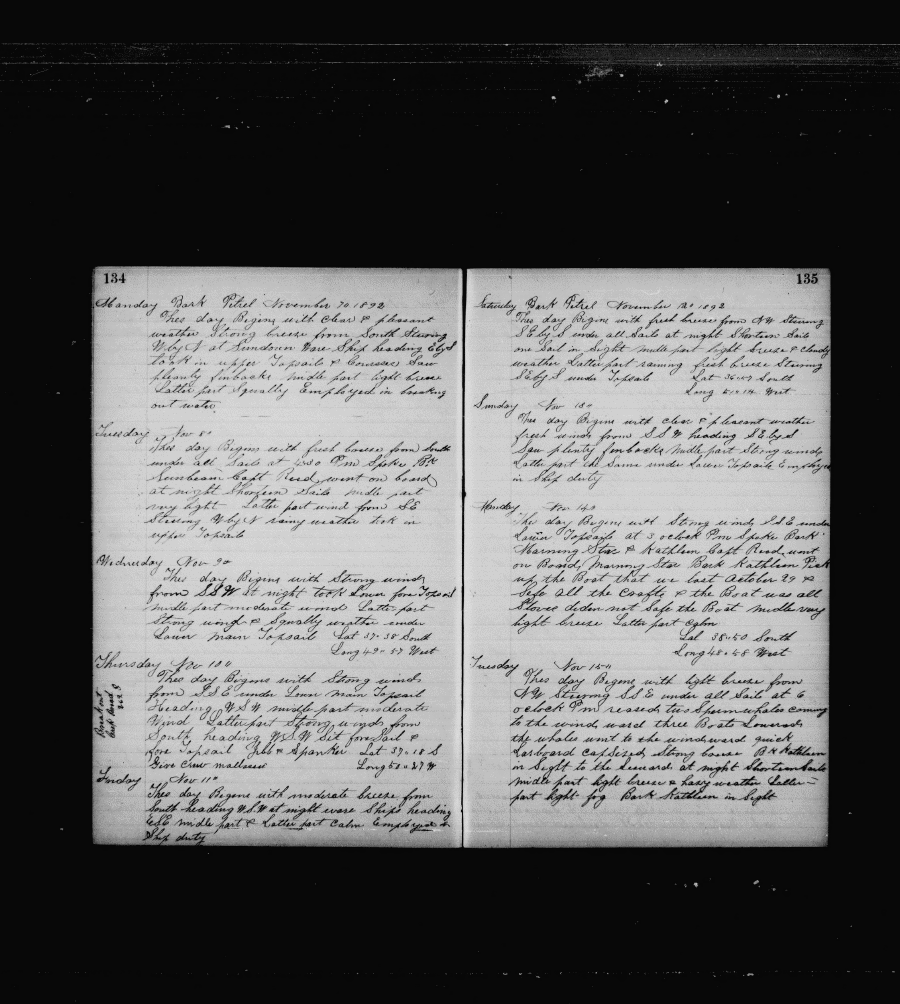 134
Monday Bark Petrel November 7th 1892
This day Begins with clear & pleasant
weather Strong breeze from South Steering
W by N at Sundown Ware Ship heading E by S
took in upper Topsails & Courses Saw
plenty finbacks middle part light breeze
Latter part Squally Employed in breaking
out water
Tuesday Nov 8th
This day Begins with fresh breeze from South
under all Sails at 4:30 Pm Spoke Bk
Sunbeam Capt Reed went on board
at night Shorten Sails midle part
very light Latter part wind from SE
Steering W by N rainy weather tok in
upper Topsails
Wednesday Nov 9th
This day Begins with Strong wind
from SSW at night tock Lower fore Topsail
midle part moderate wind Latter part
Strong wind & Squally weather under
Lower main Topsail Lat 37-38 South
Long 49-57 West
Thursday Nov 10th
This day Begins with Strong winds
from SSE under Lower main Topsail
Heading WSW middle part moderate
Wind Latter part Strong winds from
South heading WSW Set fore Sail &
fore Topsail Jibb & Spanker Lat 37-18 S
Give Crew mallasses Long 50-27 W
Break out
Beef Bread
Friday Nov 11th
This day Begins with moderate breeze from
South heading WSW at night ware Ships heading
ESE midle part & Latter part Calm Employed in
Ship duty
135
Saturday Bark Petrel November 12th 1892
This day Begins with fresh breeze from NW Steering
SE by S under all Sails at night Shorten Sails
one Sail in Sight midle part light breeze & cloudy
weather Latter part raining fresh breeze Steering
SE by S under Topsails Lat 36-57 South
Long 51-14 West
Sunday Nov 13th
This day Begins with clear & pleasant weather
fresh winds from SSW heading SE by S
Saw plenty finbacks midle part Strong winds
Latter part the Same under Lower Topsails Employed
in Ship duty
Monday Nov 14th
This day Begins with Strong winds SSE under
Lower Topsails at 3 oclock Pm Spoke Bark
Marning Star & Kathleen Capt Reed went
on Board Marning Star Bark Kathleen Pick
up the Boat that we lost October 29 &
Safe all the Crafts & the Boat was all
Stove diden not Safe the Boat midle very
light breeze Latter part Calm
Lat 38-50 South
Long 48-58 West
Tuesday Nov 15th
This day Begins with light breeze from
NW Steering SSE under all Sails at 6
oclock Pm reased two Sperm whales coming
to the wind ward three Boats Lowered
the whales went to the windward quick
Larboard Capsized Strong breeze Bk Kathleen
in Sight to the Leeward at night Shorten Sails
midle part light breeze & hasy weather Latter
part light fog Bark Kathleen in Sight